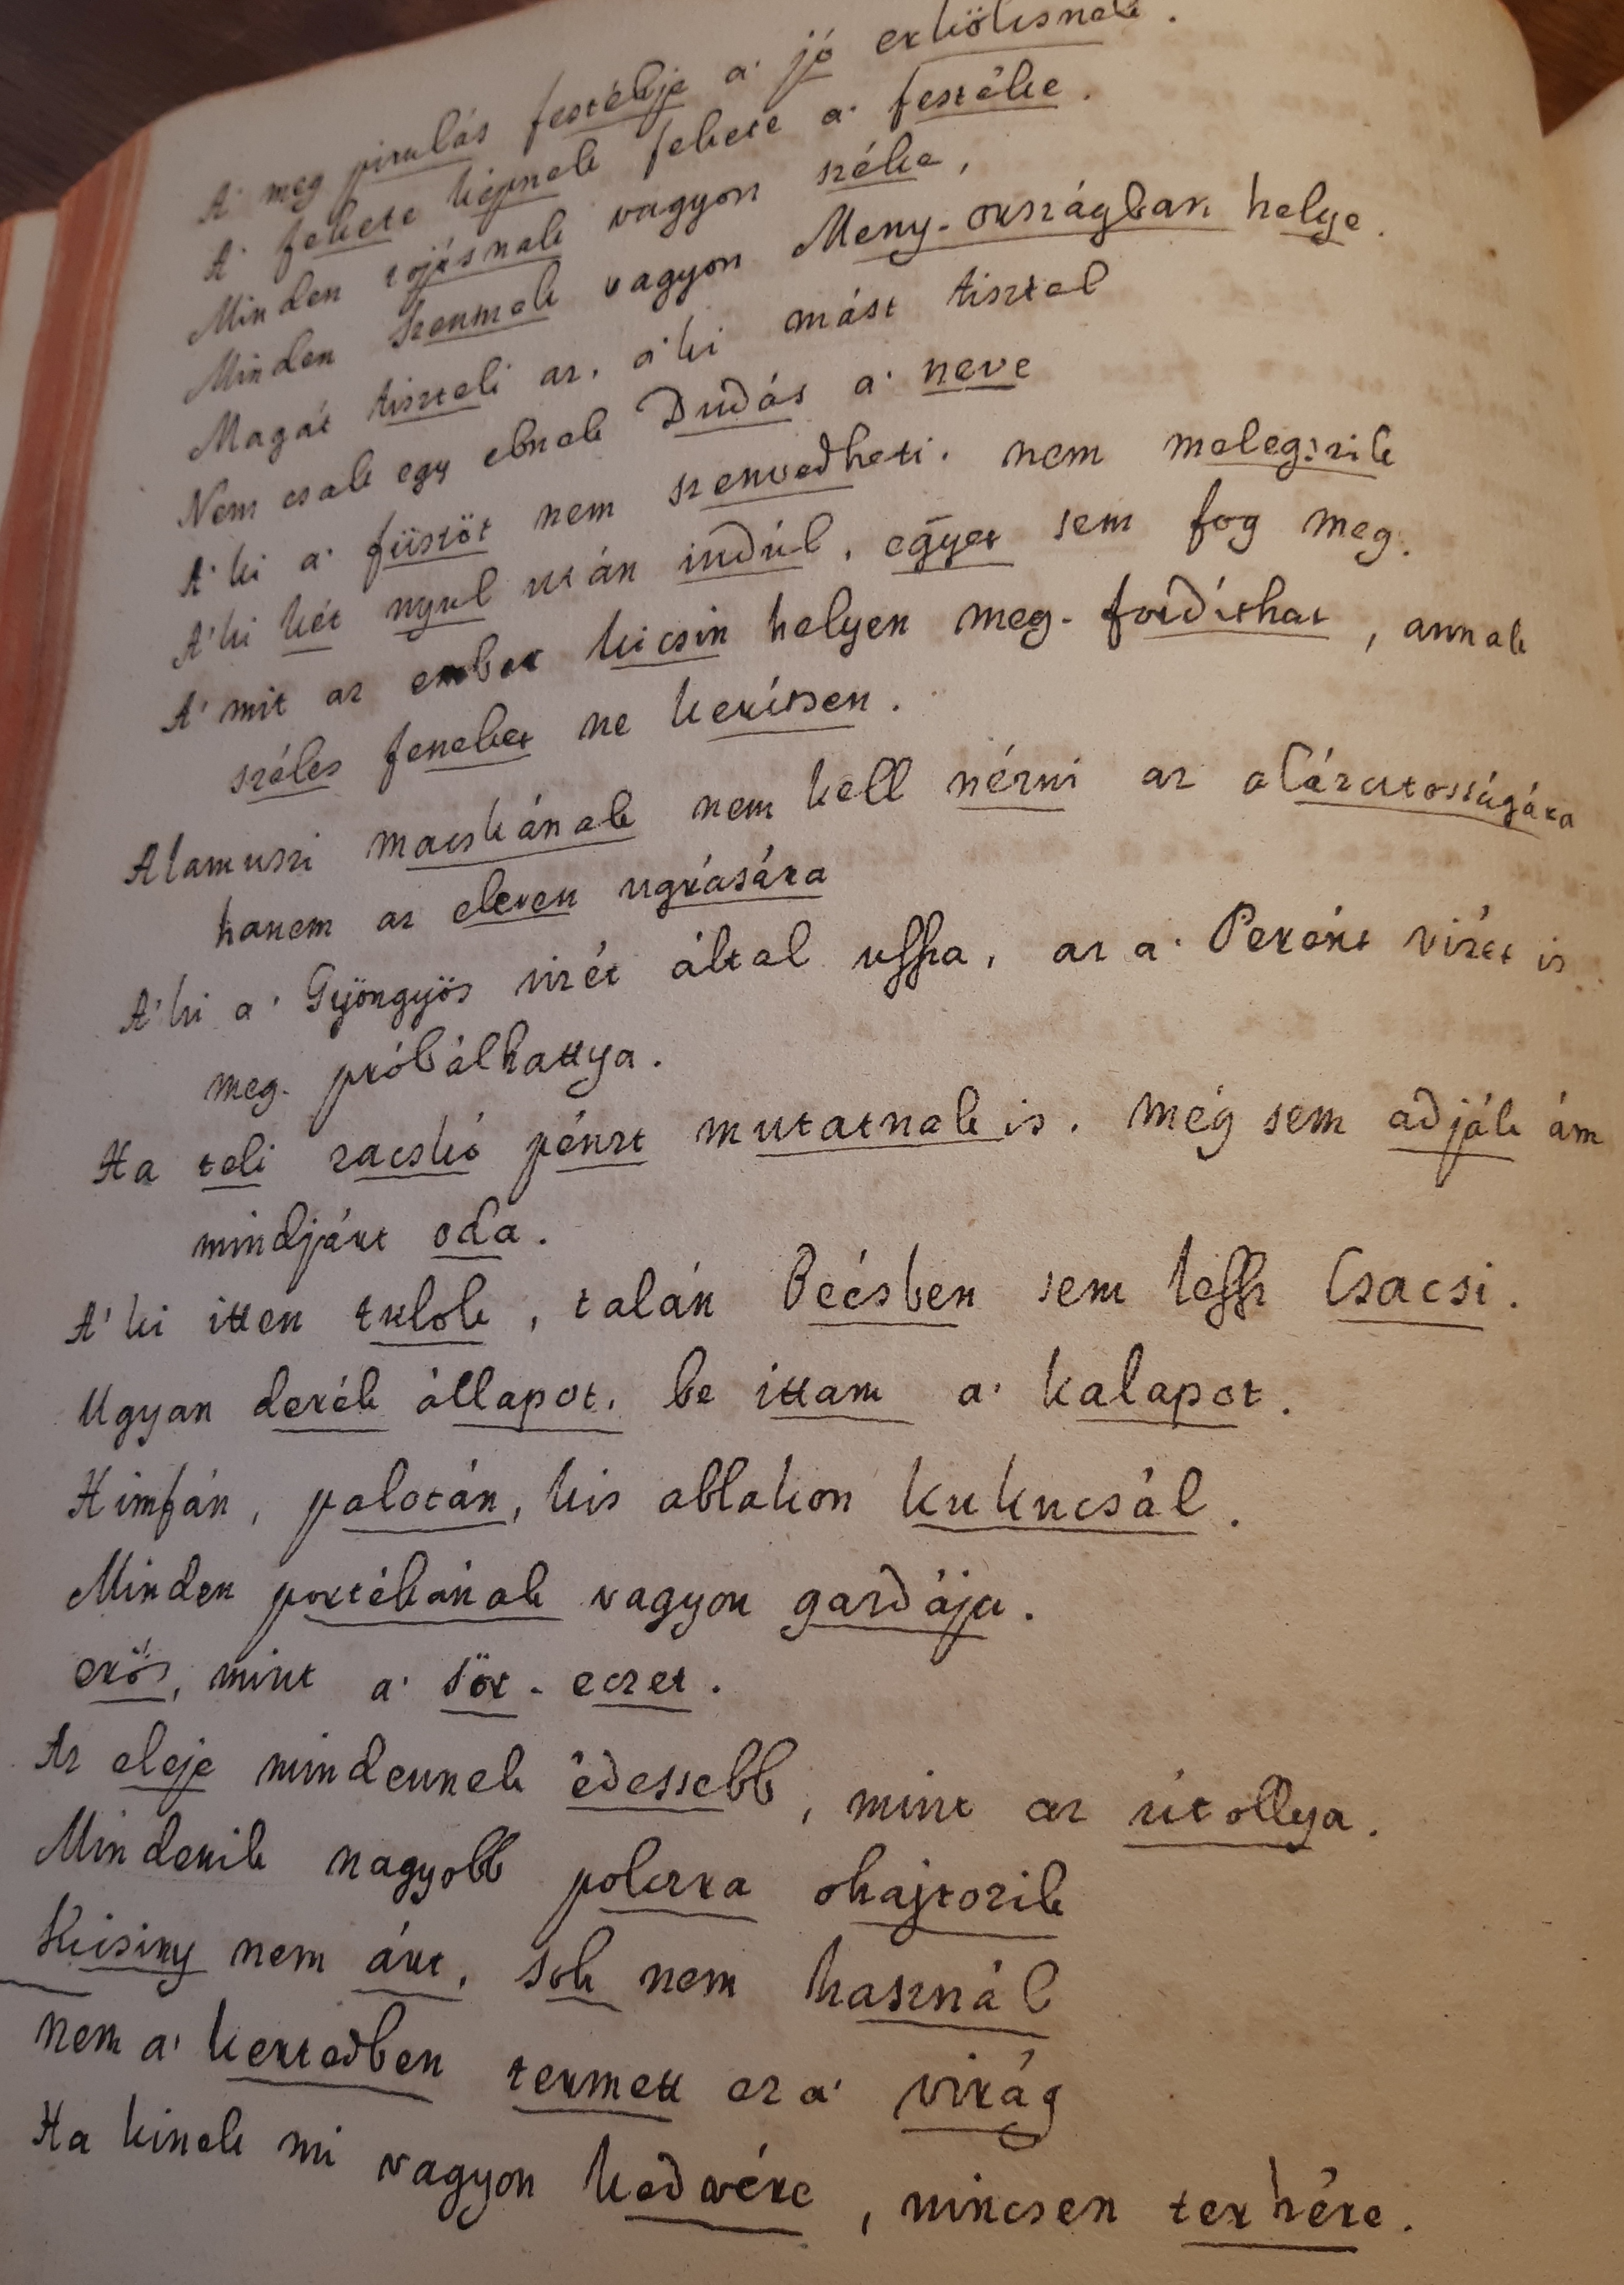 A' meg pirulás festékje a' jó erkőlcsnek.
A' fekete képnek fekete a' festéke.
Minden tojásnak vagyon széke,
Minden szennek vagyon Meny-országban helye.
Magát tiszteli az, a'ki mást tisztel
Nem csak egy ebnek Dudás a' neve
A'ki a' füstöt nem szenvedheti, nem melegszik
A'ki két nyul után indúl, egyet sem fog meg.
A' mit az ember kicsin helyen meg-fordithat, annak
széles feneket ne kerítsen.
Alamuszi macskának nem kell nézni az alázatosságára
hanem az eleven ugrására
A'ki a' Gyöngyös vizét által ussza, az a' Perént vizét is
meg-próbálhattya.
Ha teli zacskó pénzt mutatnak is, még sem adják ám
mindjárt oda.
A'ki itten tulok, talán Bécsben sem lessz Csacsi.
Ugyan derék állapot, be ittam a' kalapot.
Himfán, palotán, kis ablakon kukucsál.
Minden portékának vagyon gardája.
erős, mint a' sör-eczet.
Az eleje mindennek édessebb, mint az útollya.
Minderik nagyobb polczra ohajtozik
Kicsiny nem árt, sok nem használ
nem a' kertedben termett ez a' virág
Ha kinek mi vagyon kedvére, nincsen terhére.